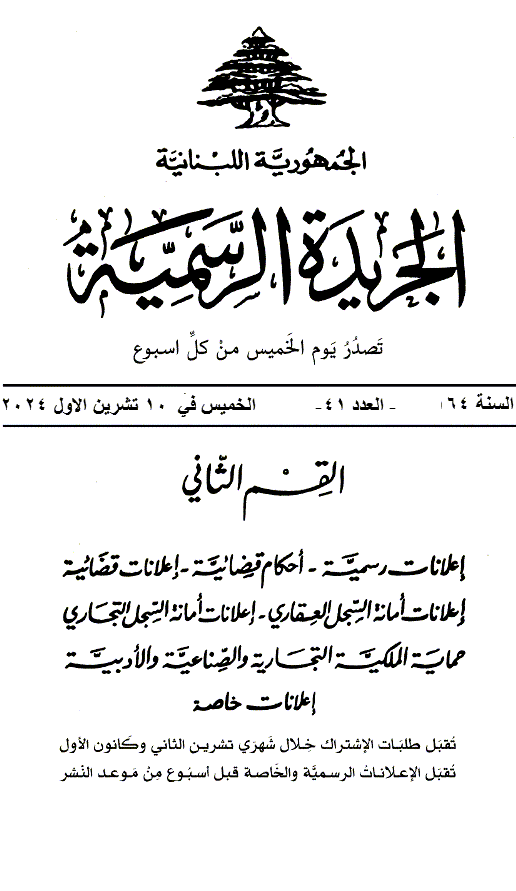 الجمهورية اللبنانية
الجريدة الرسمية
تَصدُرُ يَوم الخَميس مِنْ كلِّ اسبوع
السنة ١٦٤ - العدد ٤١ - الخميس في ١٠ تشرين الاول ٢٠٢٤
القِسْم الثّاني
إعلانات رسميَّة - أحكام قضائيَّة - إعلانات قضائية
إعلانات أمانة السِّجل العِقاري - إعلانات أمانة السِّجل التجاري
حماية الملكيَّة التجارية والصِّناعيَّة والأدبيَّة
إعلانات خاصة
تُقبَل طلبَات الإشتراك خِلال شَهرَي تشرين الثاني وكَانون الأول
تُقبَل الإعلاناتُ الرسميَّة والخَاصة قبل أسبُوع مِنْ مَوعد النَشر